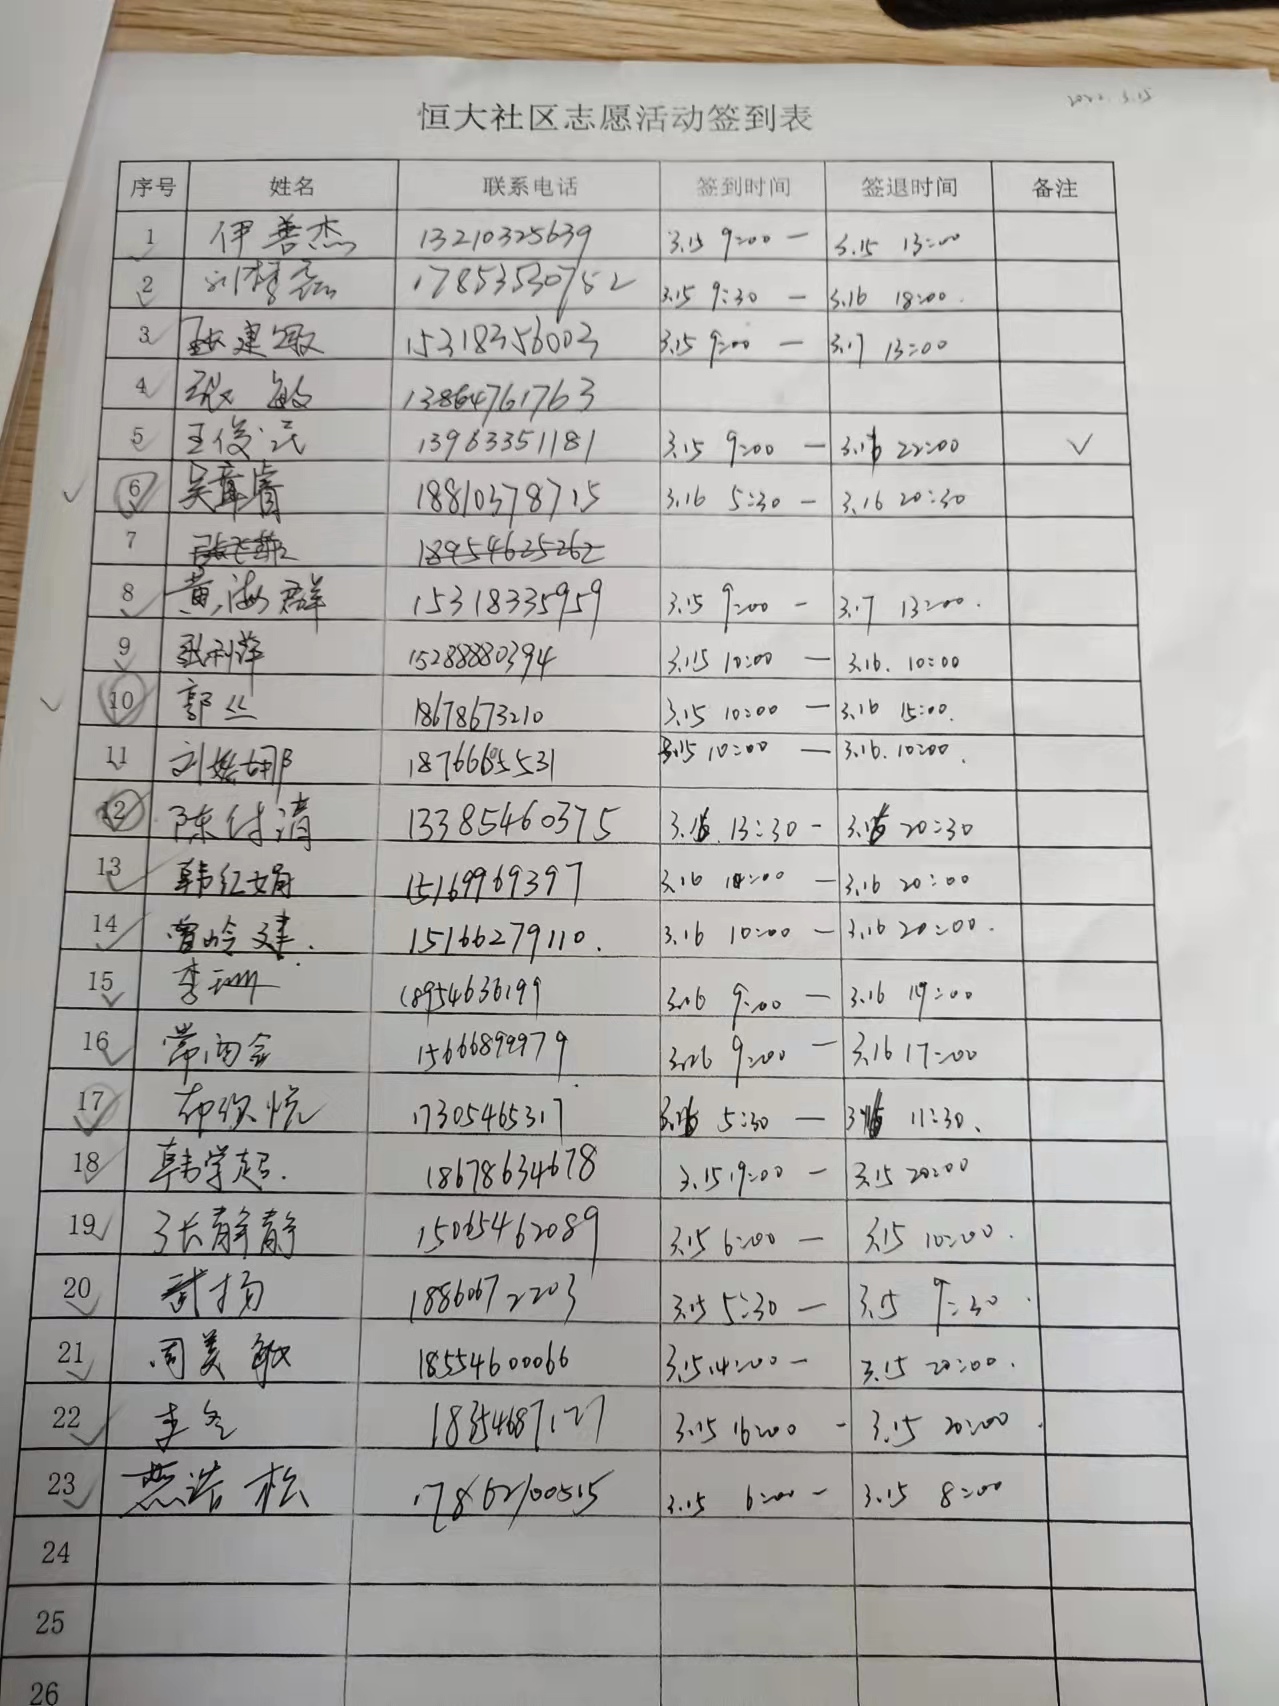 2022.3.15
恒大社区志愿活动签到表
序号 姓名 联系电话 签到时间 签退时间 备注
1 伊善杰 13210325639 3.15 9:00 — 3.15 13:00
2 刘梦磊 17853530752 3.15 9:30 — 3.16 18:00.
3 建敏 15318356003 3.15 9:00 — 3.17 13:00
4 张敏 13864761763
5 王俊 13963351181 3.15 9:00 — 3.16 22:00 ✓
6 吴 18810378715 3.16 5:30 — 3.16 20:30
7 18954625262
8 黄海群 15318335959 3.15 9:00 — 3.17 13:00.
9 张利萍 15288880394 3.15 10:00 — 3.16. 10:00
10 郭丝 18678673210 3.15 10:00 — 3.16 15:00.
11 刘娜 18766605531 3.15 10:00 — 3.16. 10:00.
12 陈付清 13385460375 13:30 — 20:30
13 韩红娟 15169969397 3.16 — 3.16 20:00
14 曾岭建. 15166279110. 3.16 10:00 — 3.16 20:00.
15 李珊 18954636199 3.16 9:00 — 3.16 19:00
16 常雨 15666899979 3.16 9:00 — 3.16 17:00
17 悦 17305465317 5:30 — 11:30.
18 韩学超. 18678634678 3.15 19:00 — 3.15 20:00
19 张静静 15065462089 3.15 6:00 — 3.15 10:00.
20 武扬 18860672203 3.15 5:30 — 3.15 9:30.
21 周美敏 18554600066 3.15 14:00 — 3.15 20:00.
22 李冬 18354687127 3.15 16:00 — 3.15 20:00.
23 燕浩松 17862100515 3.15 6:00 — 3.15 8:00
24
25
26